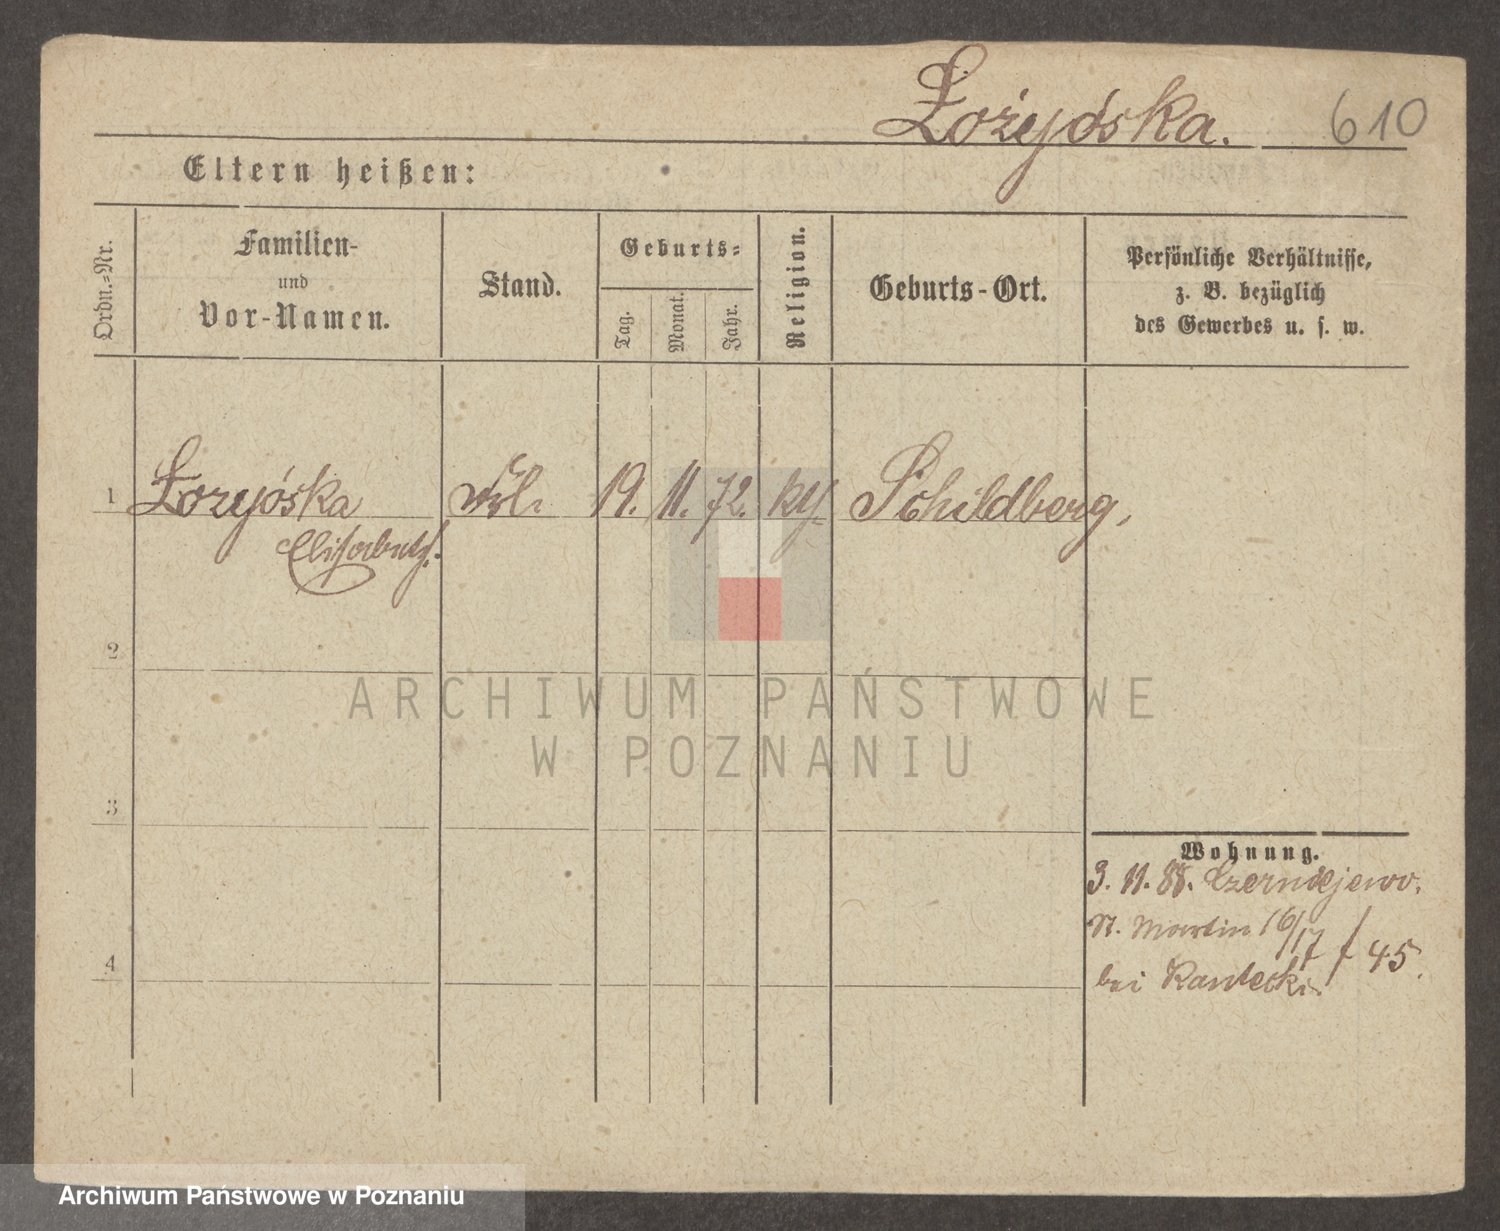 Łożyóska. 610
Eltern heißen:
Ordn.-Nr.
Familien-
und
Vor-Namen.
Stand.
Geburts-
Tag.
Monat.
Jahr.
Religion.
Geburts-Ort.
Persönliche Verhältnisse,
z. B. bezüglich
des Gewerbes u. s. w.
1 Łozyóska Frl. 19. 11. 72. Schildberg,
Elisabeth.
2
ARCHIWUM PAŃSTWOWE
W POZNANIU
3
Wohnung.
3. 11. 88. Czerniejewo.
St. Martin 16/17 f 45.
bei Kantecki.
4
Archiwum Państwowe w Poznaniu